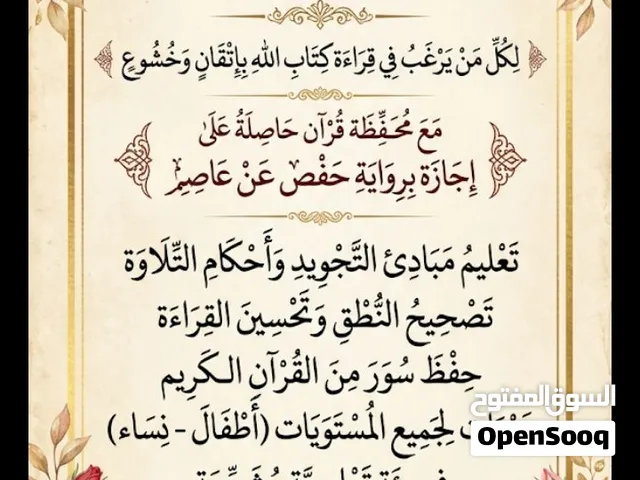 لِكُلِّ مَنْ يَرْغَبُ فِي قِرَاءَة كِتَابِ اللهِ بِإِتْقَانٍ وَخُشُوعٍ
مَعَ مُحَفِّظَة قُرْآن حَاصِلَةُ عَلَى
إِجَازَة بِرِوَايَةِ حَفْص عَنْ عَاصِمِ
تَعْلِيمُ مَبَادِئ التَّجْوِيدِ وَأَحْكَامِ التِّلَاوَة
تَصْحِيحُ النُّطْقِ وَتَحْسِينَ القِرَاءَة
حِفْظَ سُوَرَ مِنَ القُرْآنِ الكَرِيم
لِجَمِيع المُسْتَوَيَات (أَطْفَالَ - نِسَاء)
السوق المفتوح
OpenSooq